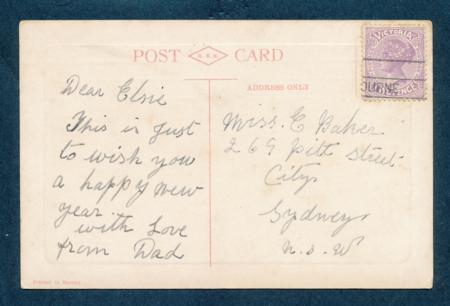 POST CARD
ADDRESS ONLY
VICTORIA
OURNE
Dear Elsie
This is just
to wish you
a happy new
year.
with Love
from Dad
Miss. E Baker
269 Pitt Street
City
Sydney
N.S.W